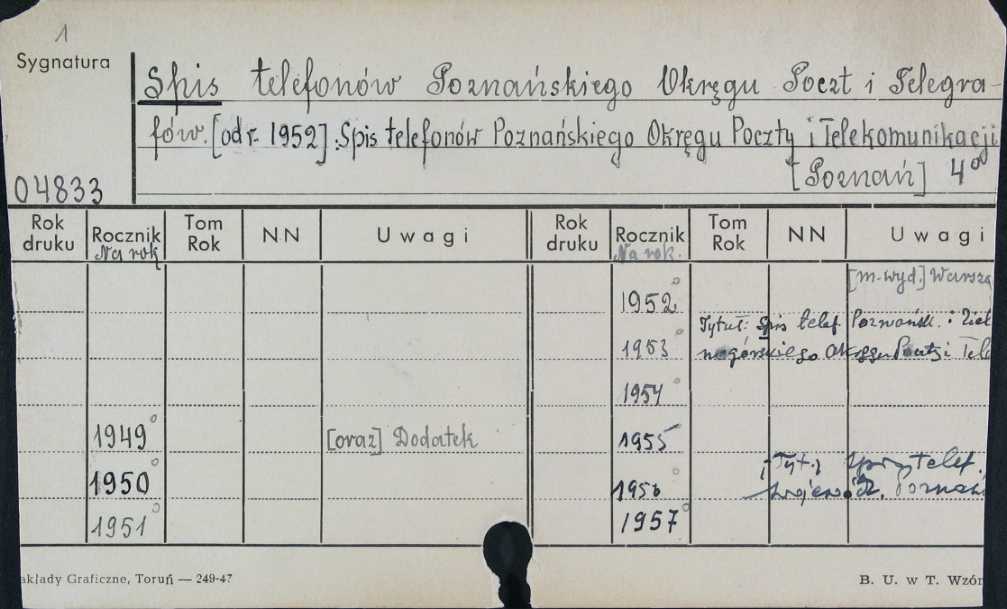 1
Sygnatura
Spis telefonów Poznańskiego Okręgu Poczt i Telegra-
fów. [od r. 1952]: Spis telefonów Poznańskiego Okręgu Poczty i Telekomunikacji
[Poznań] 4⁰⁰
04833
Rok druku Rocznik Tom Rok NN Uwagi Rok druku Rocznik Tom Rok NN Uwagi
Na rok Na rok.
[m-wyd.] Warsza
1952
Tytuł: Spis telef. Poznańsk. i Ziel
1953 nogórskiego Okręgu Poczty i Tele
1954
1949 [oraz] Dodatek 1955
[Tyt.: telef.
1950 1956 Poznańs
1951 1957
akłady Graficzne, Toruń — 249-47 B. U. w T. Wzór